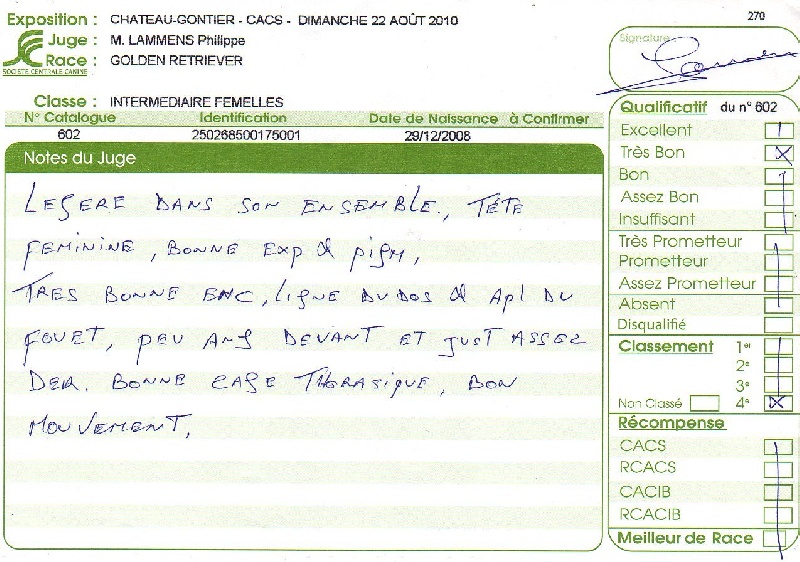 Exposition : CHATEAU-GONTIER - CACS - DIMANCHE 22 AOÛT 2010
270
Juge : M. LAMMENS Philippe
Race : GOLDEN RETRIEVER
SOCIETE CENTRALE CANINE
Signature
Classe : INTERMEDIAIRE FEMELLES
N° Catalogue Identification Date de Naissance à Confirmer
602 250268500175001 29/12/2008
Notes du Juge
LEGERE DANS SON ENSEMBLE, TÊTE
FEMININE, BONNE EXP & pigm,
TRES BONNE ENC, LIGNE DU DOS & Apl DU
FOUET, PEU ANG DEVANT ET JUST ASSEZ
DER. BONNE CAGE THORASIQUE, BON
MOUVEMENT,
Qualificatif du n° 602
Excellent
Très Bon X
Bon
Assez Bon
Insuffisant
Très Prometteur
Prometteur
Assez Prometteur
Absent
Disqualifié
Classement 1er
2e
3e
Non Classé 4e X
Récompense
CACS
RCACS
CACIB
RCACIB
Meilleur de Race